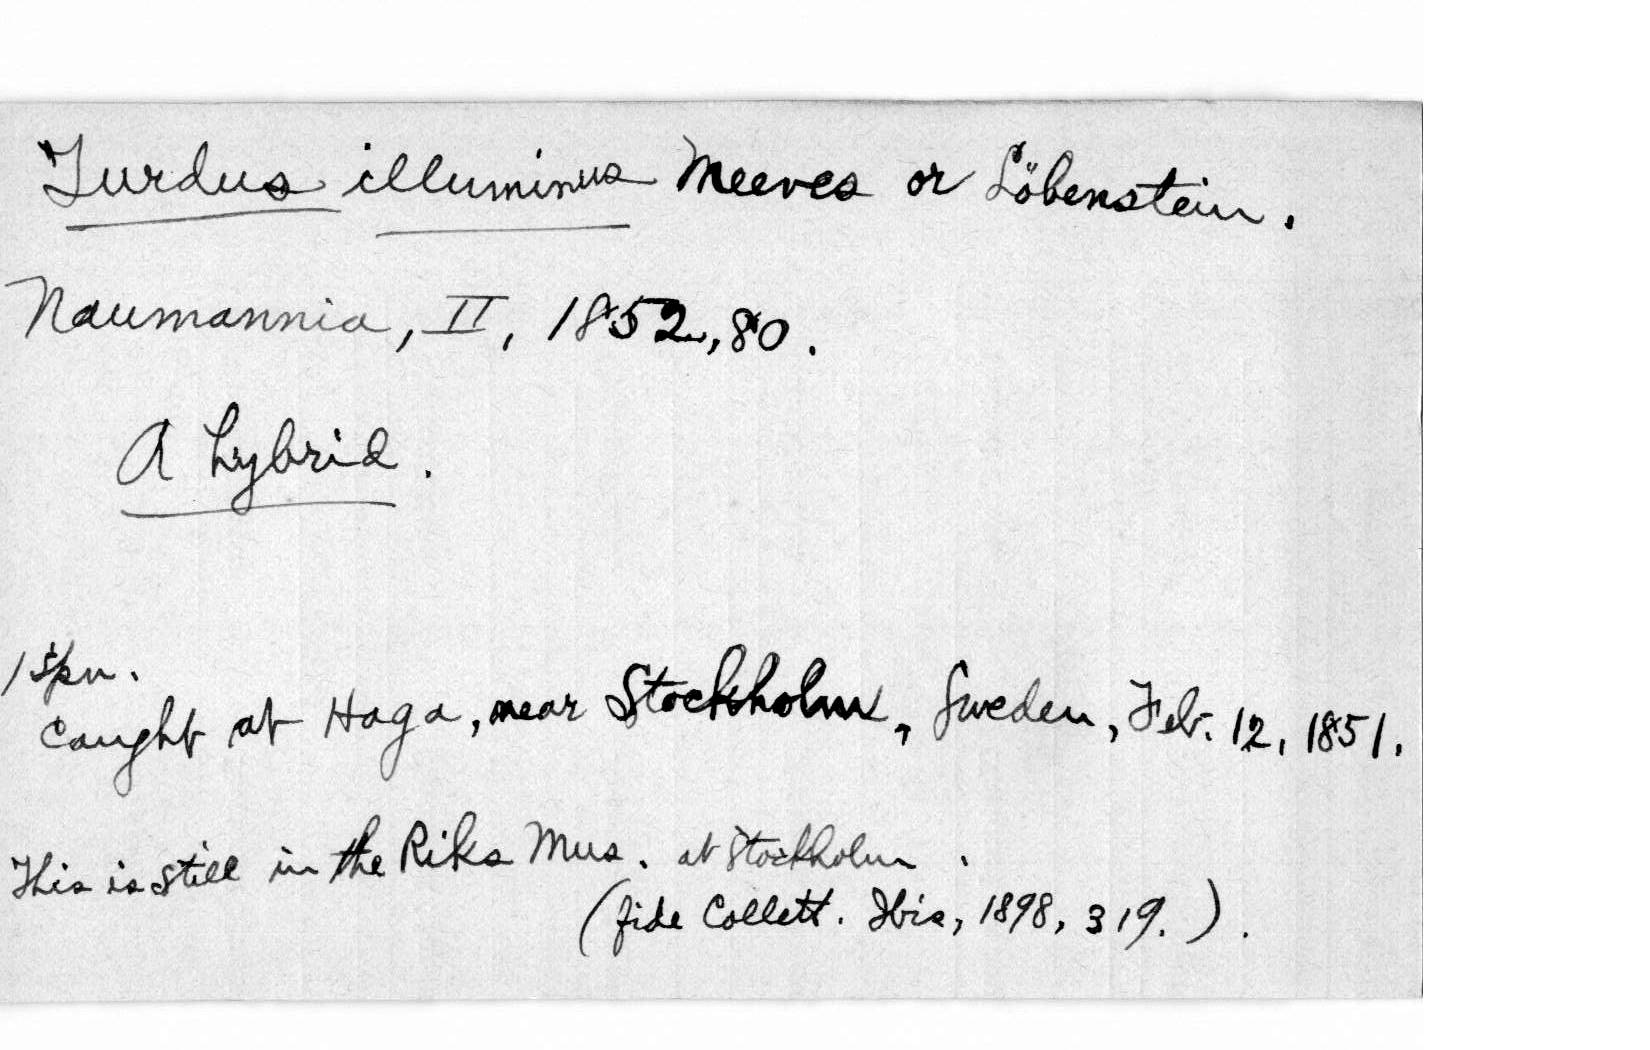 Turdus illuminus Meeves or Löbenstein.
Naumannia, II, 1852, 80.
A hybrid.
1 spn.
Caught at Haga, near Stockholm, Sweden, Feb. 12, 1851.
This is still in the Riks Mus. at Stockholm.
(fide Collett. Ibis, 1898, 319.).